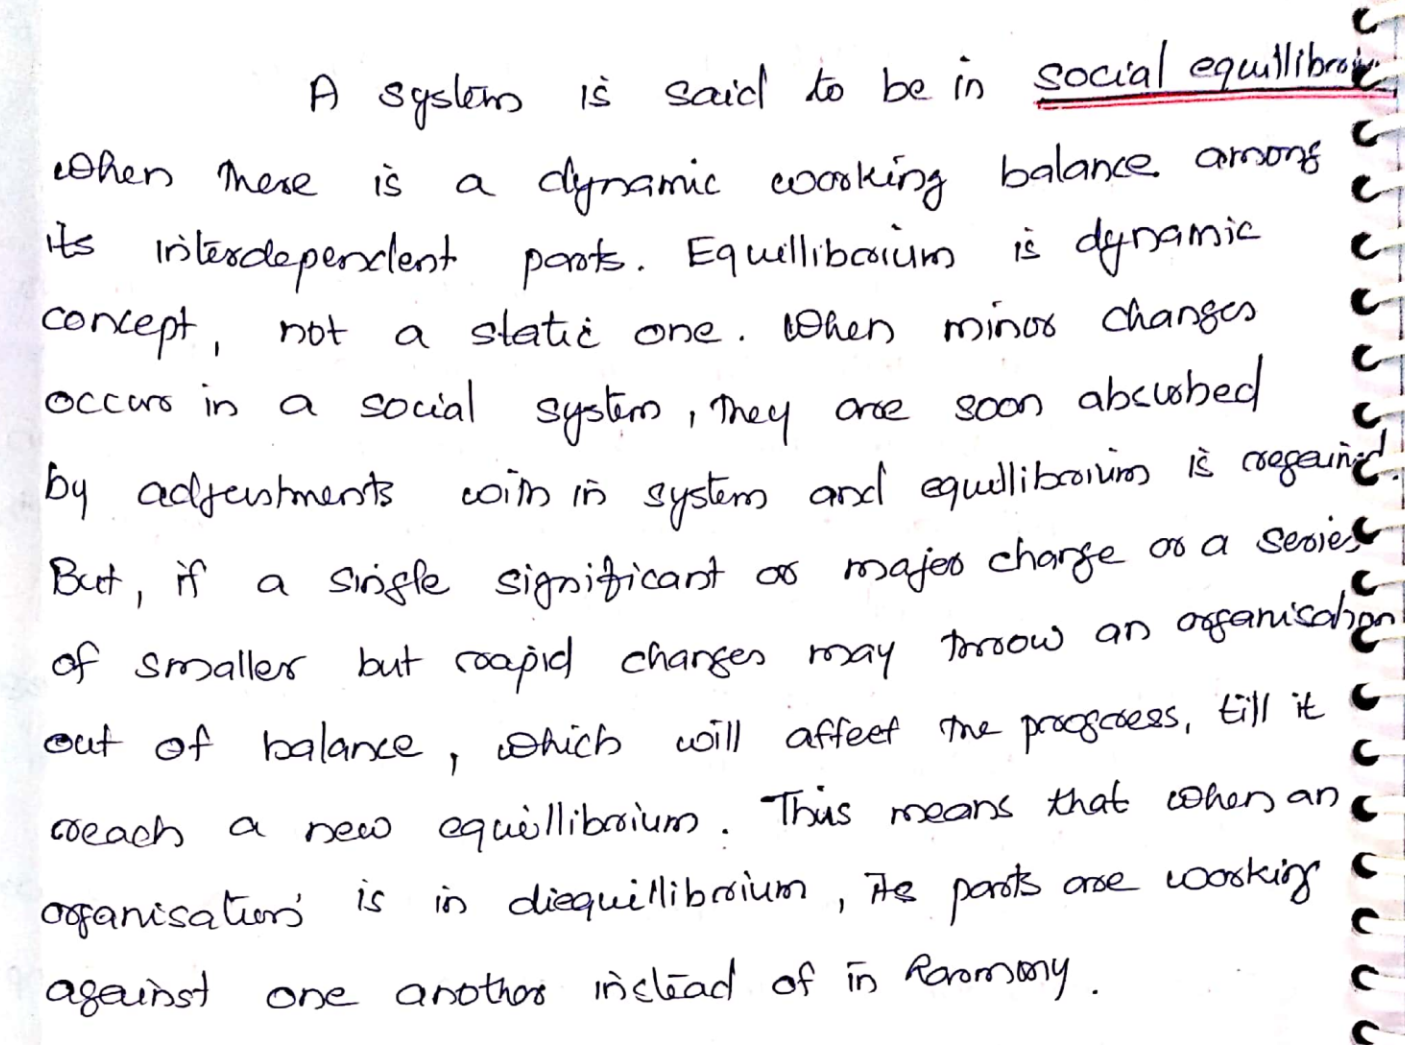 A system is said to be in social equillibrium
when there is a dynamic working balance among
its interdependent parts. Equillibrium is dynamic
concept, not a static one. When minor changes
occurs in a social system, they are soon absurbed
by adjustments with in system and equillibrium is regained.
But, if a single significant or major change or a series
of smaller but rapid changes may throw an organisation
out of balance, which will affect the progress, till it
reach a new equillibrium. This means that when an
organisation is in diequillibrium, its parts are working
against one another instead of in harmony.